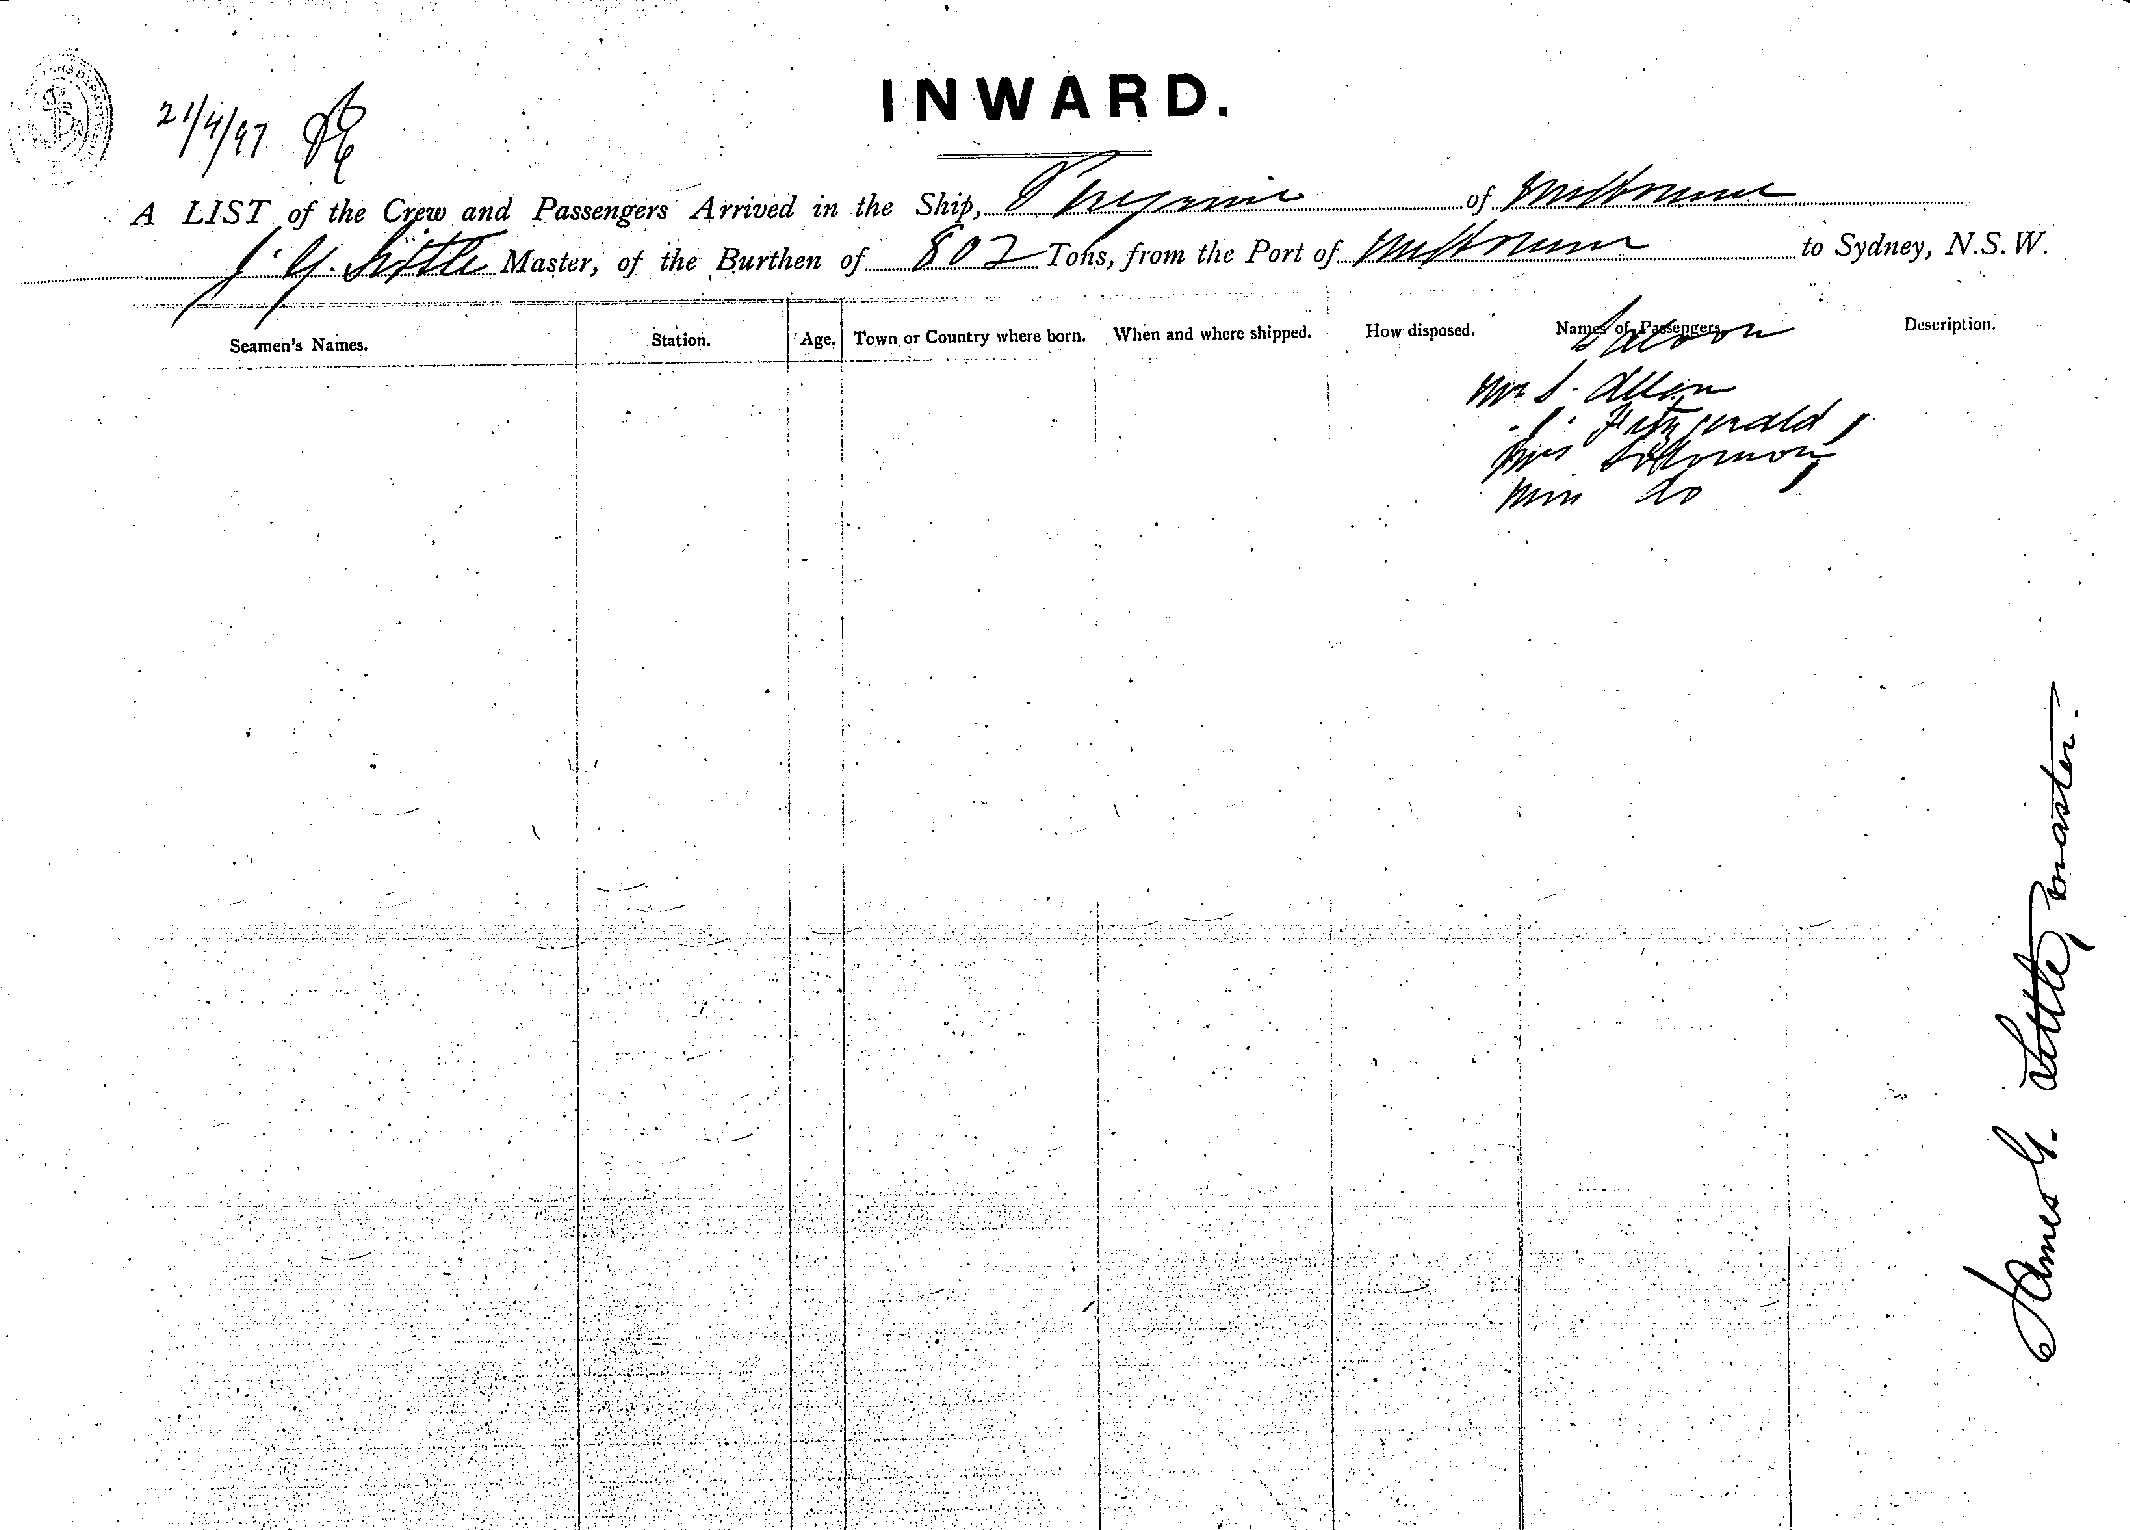 INWARD.
21/4/97
A LIST of the Crew and Passengers Arrived in the Ship, of Melbourne
J. G. Little Master, of the Burthen of 802 Tons, from the Port of Melbourne to Sydney, N.S.W.
Seamen's Names. Station. Age. Town or Country where born. When and where shipped. How disposed. Names of Passengers Description.
Saloon
Mr S. Allen
J. Fitzgerald
Mrs Solomon
Miss do
James G. Little, master.